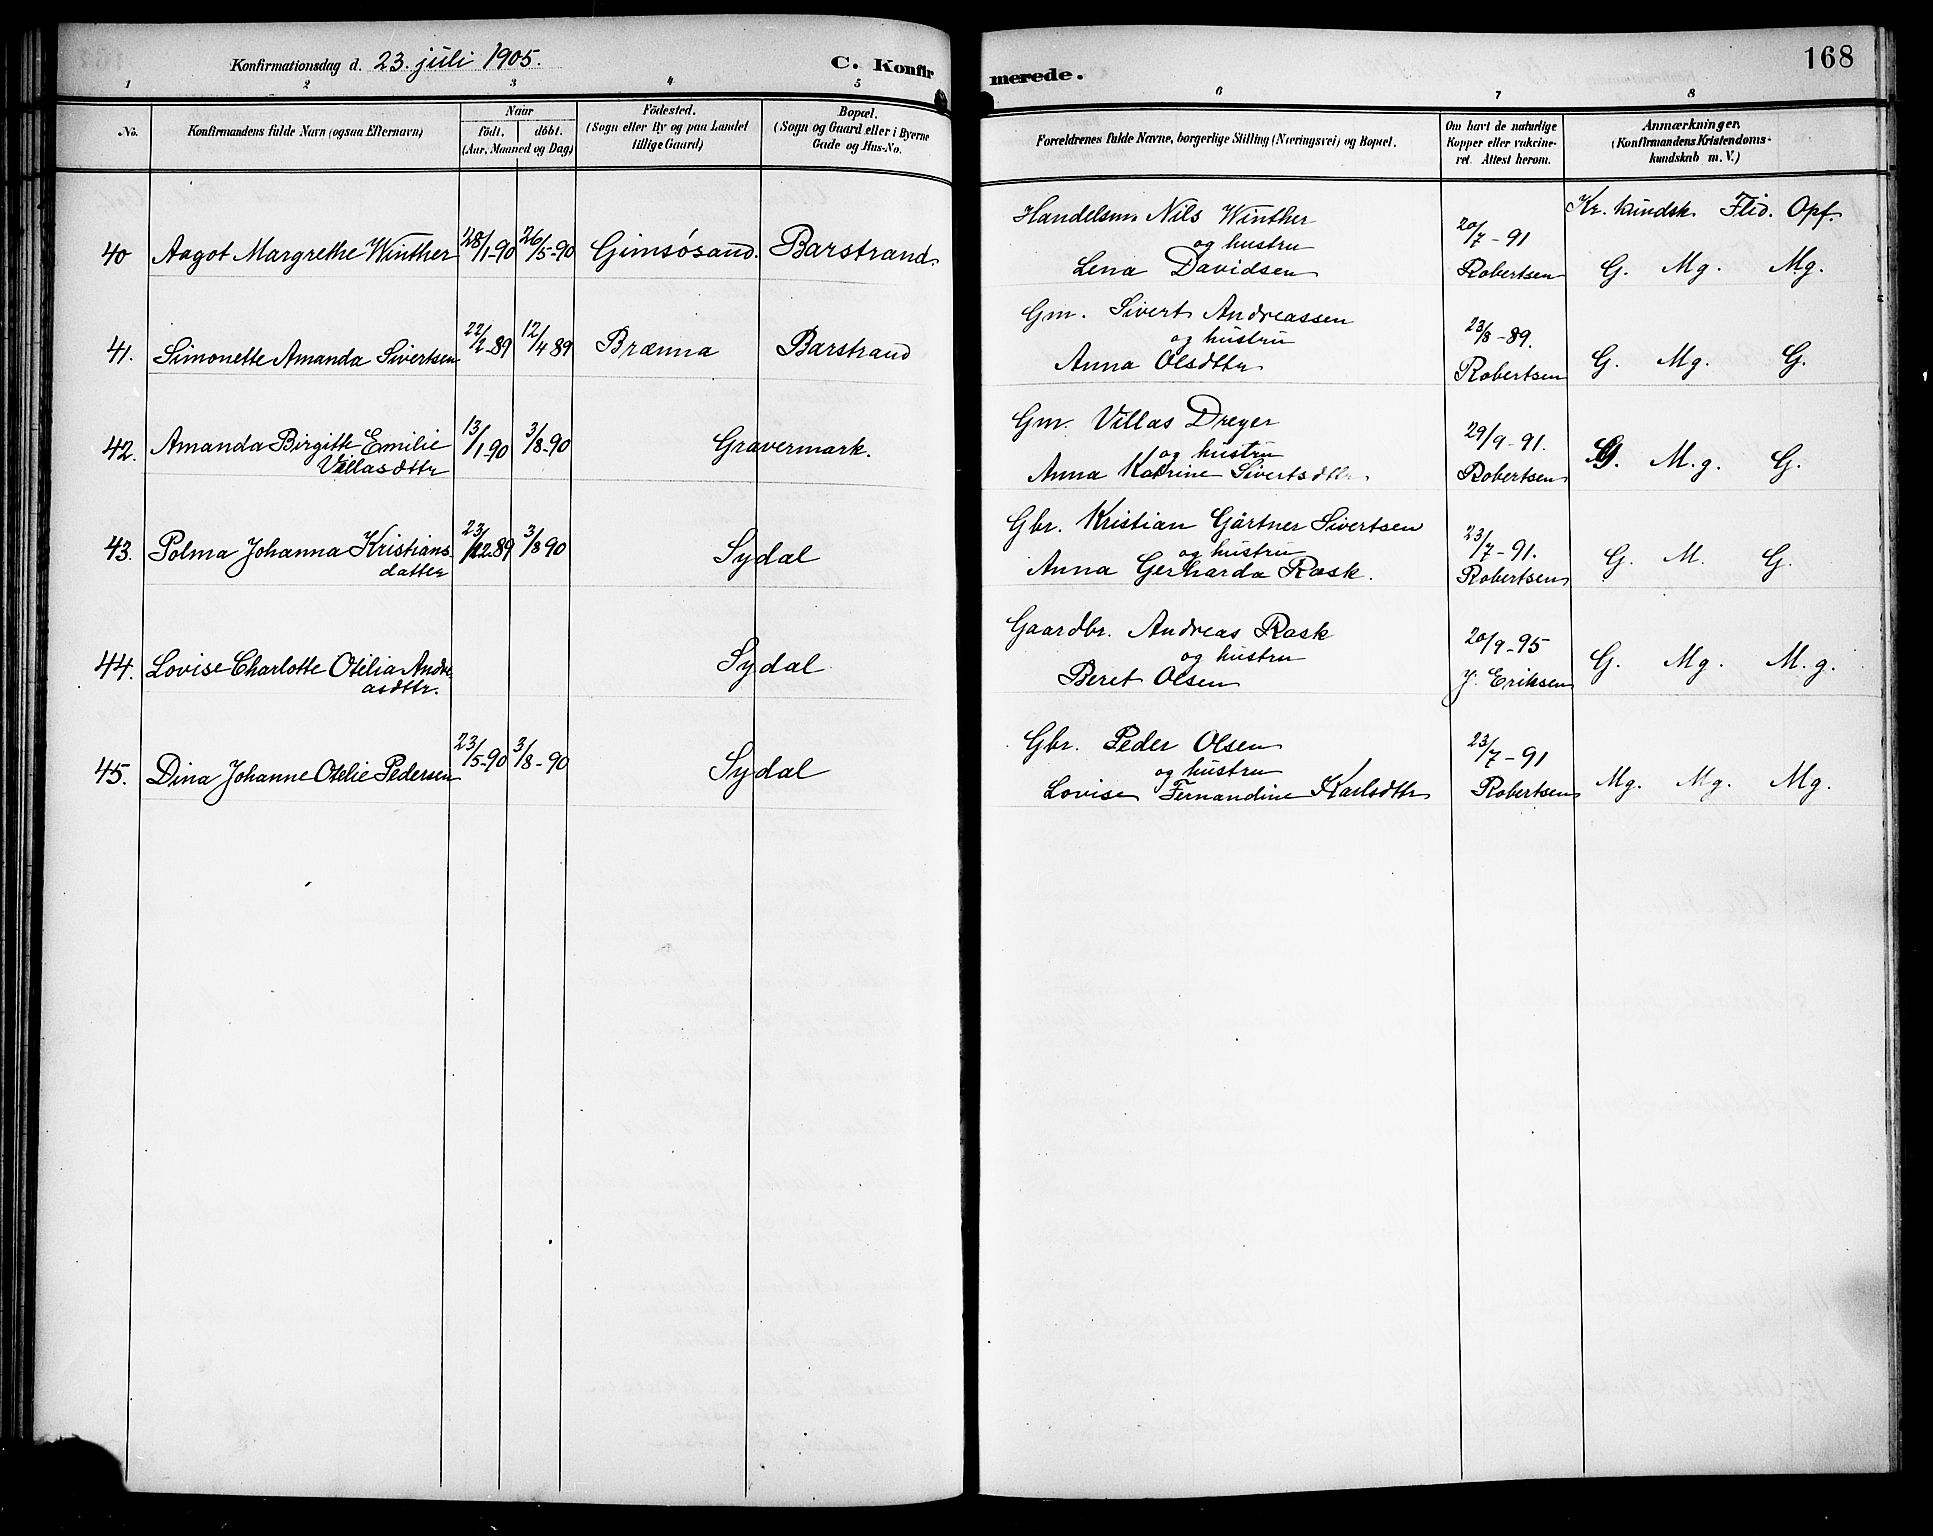 Konfirmationsdag d. 23. juli 1905.
C. Konfirmerede.
168
1 2 3 4 5 6 7 8
No.
Konfirmandens fulde Navn (ogsaa Efternavn)
Naar
født. døbt.
(Aar, Maaned og Dag)
Fødested.
(Sogn eller By og paa Landet
tillige Gaard)
Bopæl.
(Sogn og Gaard eller i Byerne
Gade og Hus-No.
Forældrenes fulde Navne, borgerlige Stilling (Næringsvei) og Bopæl.
Om havt de naturlige
Kopper eller vakcine-
ret. Attest herom.
Anmærkninger.
(Konfirmandens Kristendoms-
kundskab m. V.)
Kr. kundsk. Flid. Opf.
40 Aagot Margrethe Winther 28/1-90 26/5-90 Gimsøsand. Barstrand.
Handelsm. Nils Winther
og hustru
Lena Davidsen
20/7-91
Robertsen
G. Mg. Mg.
41. Simonette Amanda Sivertsen 22/2-89 12/4 89 Brænna Barstrand
Gm. Sivert Andreassen
og hustru
Anna Olsdttr
23/8-89.
Robertsen
G. Mg. G.
42. Amanda Birgitte Emilie
Villasdttr
13/1-90 3/8-90 Gravermark.
Gm. Villas Dreyer
og hustru
Anna Katrine Sivertsdttr.
29/9-91.
Robertsen
G. M.g. G.
43. Polma Johanna Kristians
datter
23/12-89 3/8 90 Sydal
Gbr. Kristian Gärtner Sivertsen
og hustru
Anna Gerharda Rask.
23/7-91.
Robertsen
G. M. G.
44. Lovise Charlotte Otelia Andre
asdttr.
Sydal
Gaardbr. Andreas Rask
og hustru
Beret Olsen
20/9-95
J. Eriksen
G. Mg. M.g.
45. Dina Johanne Otelie Pedersen 23/5-90 3/8-90 Sydal
Gbr. Peder Olsen
og hustru
Lovise Fernandine Karlsdttr
23/7-91
Robertsen
Mg. Mg. Mg.